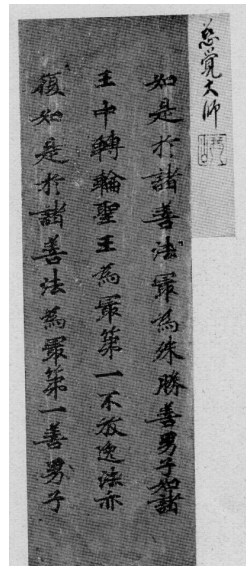 慈覺大師
如是於諸善法㝡為殊勝善男子如諸
王中轉輪聖王為㝡第一不放逸法亦
復如是於諸善法為㝡第一善男子